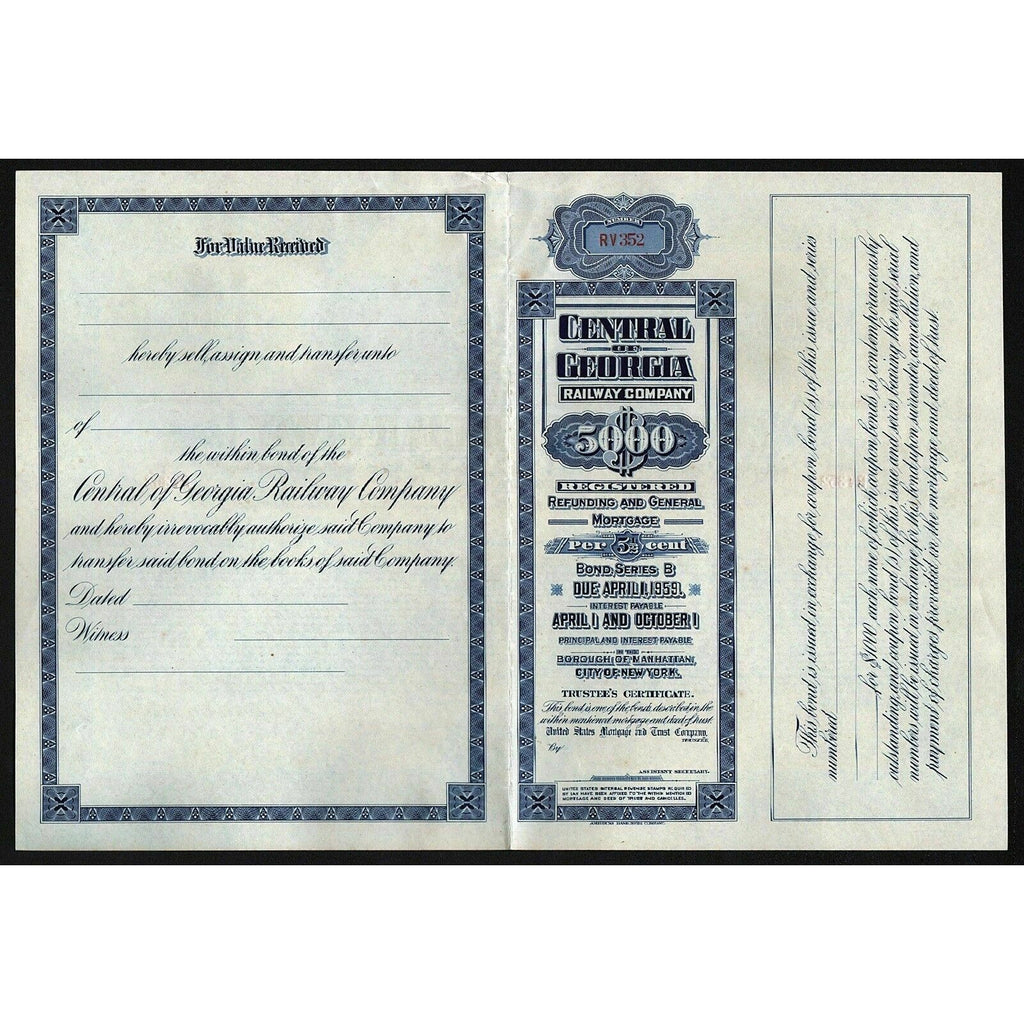 For Value Received
hereby sell, assign, and transfer unto
of
the within bond of the
Central of Georgia Railway Company
and hereby irrevocably authorize said Company to
transfer said bond on the books of said Company.
Dated
Witness
NUMBER
RV352
CENTRAL
OF
GEORGIA
RAILWAY COMPANY
$5000
REGISTERED
REFUNDING AND GENERAL
MORTGAGE
PER 5½ CENT
BOND, SERIES B
DUE APRIL 1, 1959.
INTEREST PAYABLE
APRIL 1 AND OCTOBER 1
PRINCIPAL AND INTEREST PAYABLE
IN THE
BOROUGH OF MANHATTAN,
CITY OF NEW YORK.
TRUSTEE'S CERTIFICATE.
This bond is one of the bonds, described in the
within mentioned mortgage and deed of trust.
United States Mortgage and Trust Company,
TRUSTEE
By
ASSISTANT SECRETARY.
UNITED STATES INTERNAL REVENUE STAMPS REQUIRED
BY LAW HAVE BEEN AFFIXED TO THE WITHIN MENTIONED
MORTGAGE AND DEED OF TRUST AND CANCELLED.
AMERICAN BANK NOTE COMPANY.
This bond is issued in exchange for coupon bond(s) of this issue and series
numbered
for $1000 each none of which coupon bonds is contemporaneously
outstanding, and coupon bond(s) of this issue and series bearing the said serial
numbers will be issued in exchange for this bond upon surrender, cancellation, and
payment of charges provided in the mortgage and deed of trust.